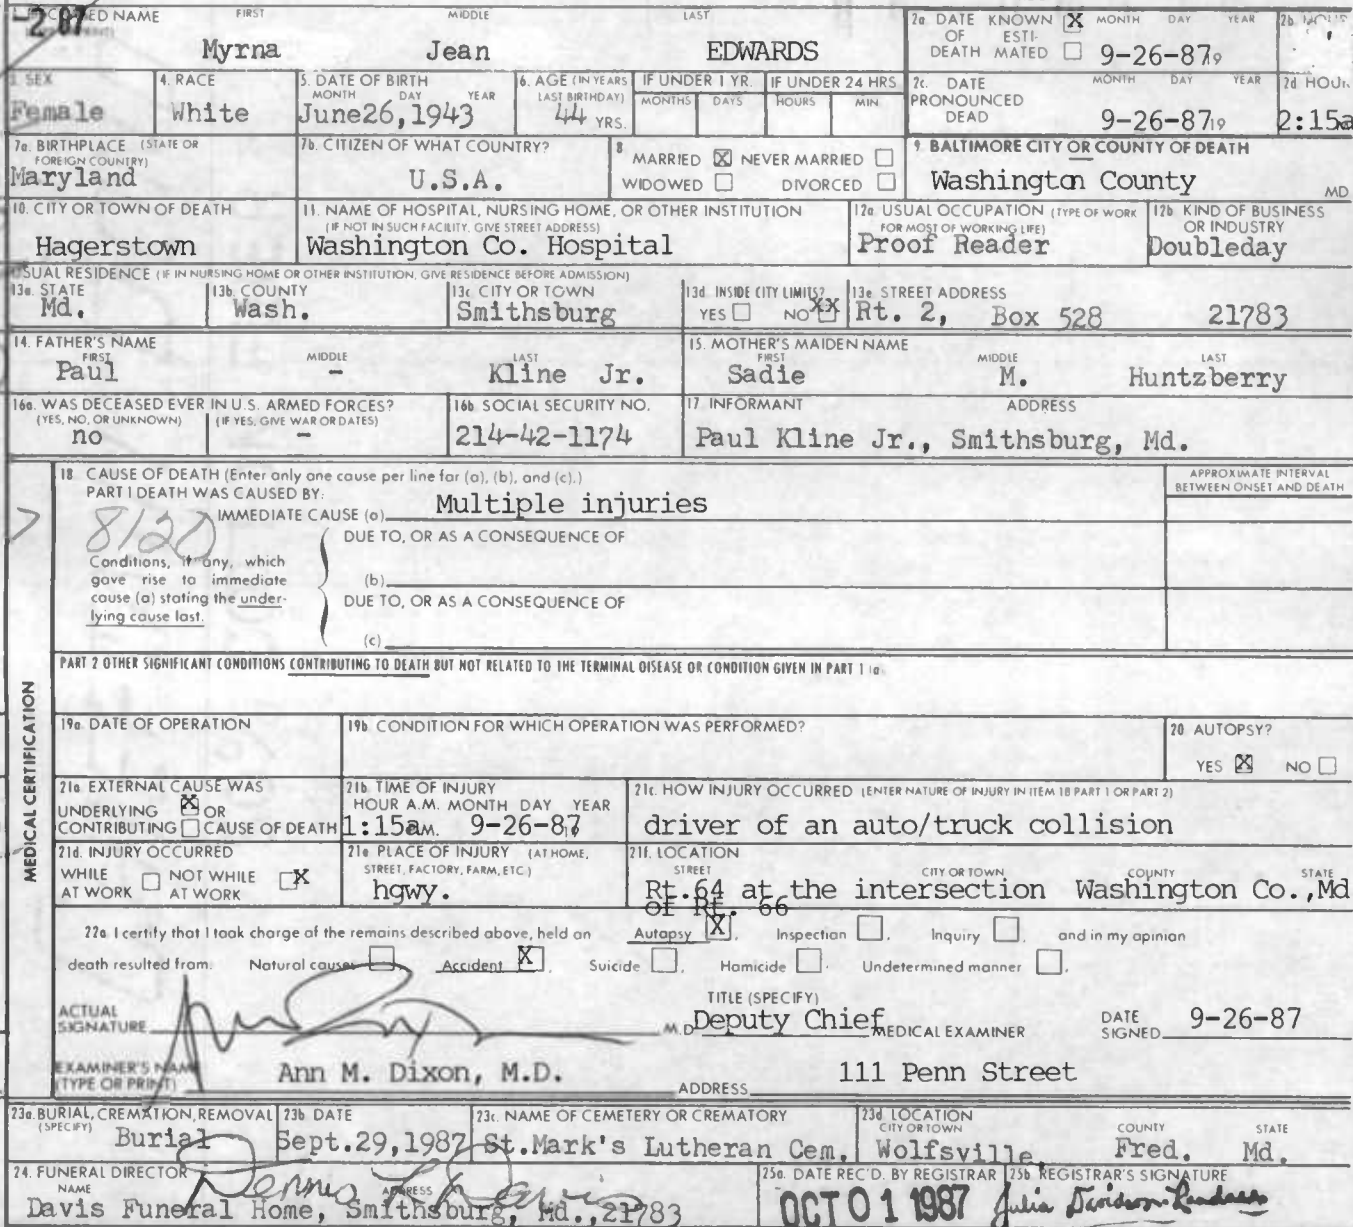 -2 87
NAME FIRST MIDDLE LAST
Myrna Jean EDWARDS
2a DATE KNOWN X MONTH DAY YEAR
OF ESTI-
DEATH MATED
9-26-87 19
2b
SEX
Female
4. RACE
White
5. DATE OF BIRTH
MONTH DAY YEAR
June26,1943
6. AGE (IN YEARS
LAST BIRTHDAY)
44 YRS.
IF UNDER 1 YR. IF UNDER 24 HRS
MONTHS DAYS HOURS MIN
2c. DATE MONTH DAY YEAR
PRONOUNCED
DEAD
9-26-87 19
2d HOUR
2:15a
7a. BIRTHPLACE (STATE OR
FOREIGN COUNTRY)
Maryland
7b. CITIZEN OF WHAT COUNTRY?
U.S.A.
8
MARRIED X NEVER MARRIED
WIDOWED DIVORCED
9. BALTIMORE CITY OR COUNTY OF DEATH
Washington County MD
10. CITY OR TOWN OF DEATH
Hagerstown
11. NAME OF HOSPITAL, NURSING HOME, OR OTHER INSTITUTION
(IF NOT IN SUCH FACILITY, GIVE STREET ADDRESS)
Washington Co. Hospital
12a USUAL OCCUPATION (TYPE OF WORK
FOR MOST OF WORKING LIFE)
Proof Reader
12b KIND OF BUSINESS
OR INDUSTRY
Doubleday
USUAL RESIDENCE (IF IN NURSING HOME OR OTHER INSTITUTION, GIVE RESIDENCE BEFORE ADMISSION)
13a. STATE
Md.
13b. COUNTY
Wash.
13c CITY OR TOWN
Smithsburg
13d INSIDE CITY LIMITS?
YES NO XX
13e STREET ADDRESS
Rt. 2, Box 528 21783
14. FATHER'S NAME
FIRST MIDDLE LAST
Paul - Kline Jr.
15. MOTHER'S MAIDEN NAME
FIRST MIDDLE LAST
Sadie M. Huntzberry
16a. WAS DECEASED EVER IN U.S. ARMED FORCES?
(YES, NO, OR UNKNOWN) (IF YES, GIVE WAR OR DATES)
no -
16b SOCIAL SECURITY NO.
214-42-1174
17. INFORMANT ADDRESS
Paul Kline Jr., Smithsburg, Md.
MEDICAL CERTIFICATION
18 CAUSE OF DEATH (Enter only one cause per line for (a), (b), and (c).)
PART I DEATH WAS CAUSED BY:
IMMEDIATE CAUSE (a) Multiple injuries
APPROXIMATE INTERVAL
BETWEEN ONSET AND DEATH
8120
DUE TO, OR AS A CONSEQUENCE OF
Conditions, if any, which
gave rise to immediate
cause (a) stating the under-
lying cause last.
(b)
DUE TO, OR AS A CONSEQUENCE OF
(c)
PART 2 OTHER SIGNIFICANT CONDITIONS CONTRIBUTING TO DEATH BUT NOT RELATED TO THE TERMINAL DISEASE OR CONDITION GIVEN IN PART 1 (a)
19a. DATE OF OPERATION
19b CONDITION FOR WHICH OPERATION WAS PERFORMED?
20 AUTOPSY?
YES X NO
21a EXTERNAL CAUSE WAS
UNDERLYING X OR
CONTRIBUTING CAUSE OF DEATH
21b TIME OF INJURY
HOUR A.M. MONTH DAY YEAR
1:15am. 9-26-87
21c. HOW INJURY OCCURRED (ENTER NATURE OF INJURY IN ITEM 18 PART 1 OR PART 2)
driver of an auto/truck collision
21d. INJURY OCCURRED
WHILE AT WORK NOT WHILE AT WORK X
21e PLACE OF INJURY (AT HOME,
STREET, FACTORY, FARM, ETC)
hgwy.
21f. LOCATION
STREET CITY OR TOWN COUNTY STATE
Rt.64 at the intersection Washington Co.,Md
of Rt. 66
22a I certify that I took charge of the remains described above, held an Autopsy X, Inspection , Inquiry , and in my opinion
death resulted from. Natural causes , Accident X, Suicide , Homicide . Undetermined manner .
ACTUAL
SIGNATURE
TITLE (SPECIFY)
M.D. Deputy Chief MEDICAL EXAMINER
DATE
SIGNED 9-26-87
EXAMINER'S NAME
(TYPE OR PRINT) Ann M. Dixon, M.D.
ADDRESS 111 Penn Street
23a. BURIAL, CREMATION, REMOVAL
(SPECIFY)
Burial
23b DATE
Sept.29,1987
23c. NAME OF CEMETERY OR CREMATORY
St.Mark's Lutheran Cem.
23d LOCATION
CITY OR TOWN COUNTY STATE
Wolfsville Fred. Md.
24. FUNERAL DIRECTOR
NAME ADDRESS
Dennis L Davis
Davis Funeral Home, Smithsburg, Md.,21783
25a. DATE REC'D. BY REGISTRAR
OCT 01 1987
25b REGISTRAR'S SIGNATURE
Julia Davidson-Randall